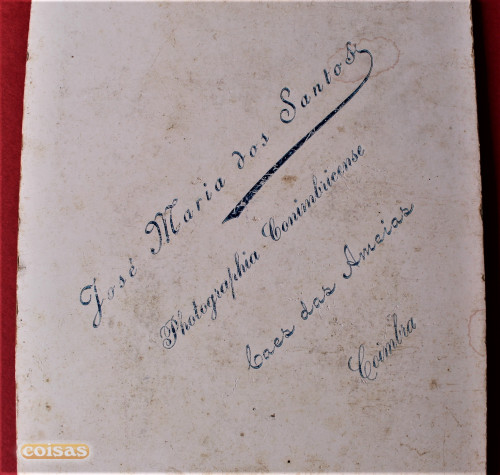 José Maria dos Santos
Photographia Conimbricense
Caes das Ameias
Coimbra
coisas